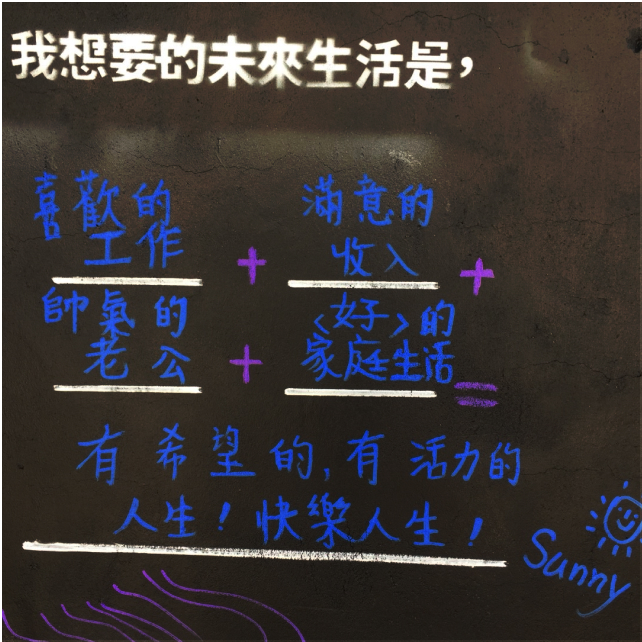 我想要的未來生活是，
喜歡的
工作
+
滿意的
收入
+
帥氣的
老公
+
<好>的
家庭生活
=
有希望的,有活力的
人生!快樂人生!
Sunny